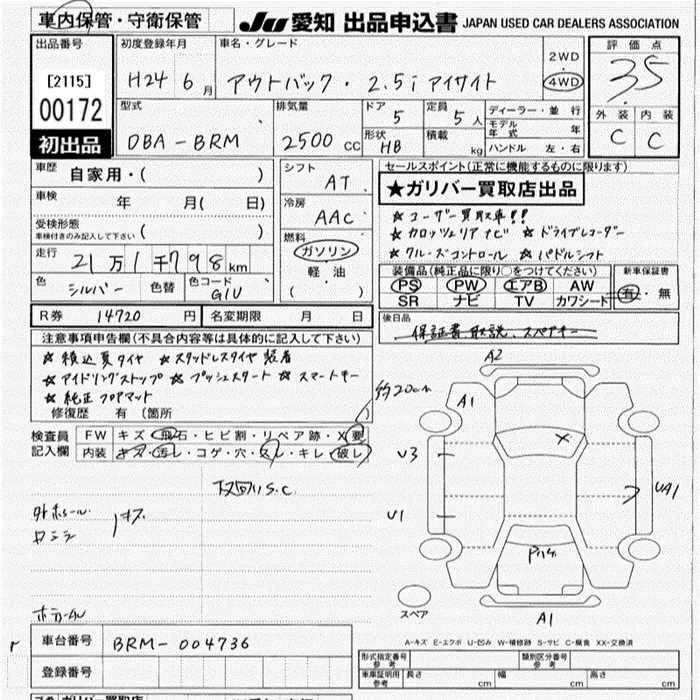 車内保管・守衛保管
JU 愛知 出品申込書 JAPAN USED CAR DEALERS ASSOCIATION
出品番号
[2115]
00172
初出品
初度登録年月
H24 6月
車名・グレード
アウトバック・2.5i アイサイト
2WD
4WD
評価点
3.5
外装 内装
C C
型式
DBA-BRM
排気量
2500 CC
ドア
5
定員
5人
形状
HB
積載
kg
ディーラー・並行
モデル年式 年
ハンドル 左・右
車歴
自家用・( )
車検
年 月( 日)
受検形態
車検付きのみ記入して下さい ( )
走行
21万1千798km
色
シルバー
色替
色コード
G1U
シフト
AT
冷房
AAC
燃料
ガソリン
軽油
( )
セールスポイント(正常に機能するものに限ります)
★ガリバー買取店出品
☆ユーザー買取車!!
☆カロッツェリアナビ ☆ドライブレコーダー
☆クルーズコントロール ☆パドルシフト
装備品(純正品に限り○をつけてください)
PS PW エアB AW
SR ナビ TV カワシート
新車保証書
有・無
R券 14720 円 名変期限 月 日
後日品
保証書 取説、スペアキー
注意事項申告欄(不具合内容等は具体的に記入して下さい)
☆積込夏タイヤ ☆スタッドレスタイヤ装着
☆アイドリングストップ ☆プッシュスタート ☆スマートキー
☆純正フロアマット
修復歴 有 (箇所 )
検査員記入欄
FW キズ・飛石・ヒビ割・リペア跡・X要
内装 キズ・汚レ・コゲ・穴・スレ・キレ・破レ
約20cm
下回りS.C.
キズ
A2
A1
U3
U1
UA1
X
A1
スペア
A-キズ E-エクボ U-凹み W-補修跡 S-サビ C-腐食 XX-交換済
車台番号 BRM-004736
登録番号
型式指定番号 参考
類別区分番号 参考
車庫証明用 参考 長さ cm 幅 cm 高さ cm